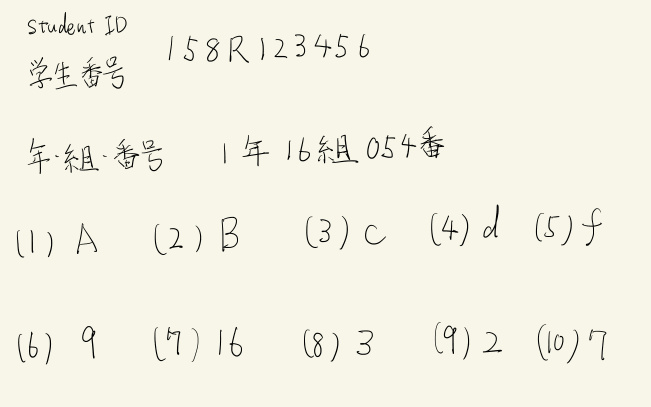 Student ID
学生番号 158R123456
年・組・番号 1年16組054番
(1) A (2) B (3) c (4) d (5) f
(6) 9 (7) 16 (8) 3 (9) 2 (10) 7